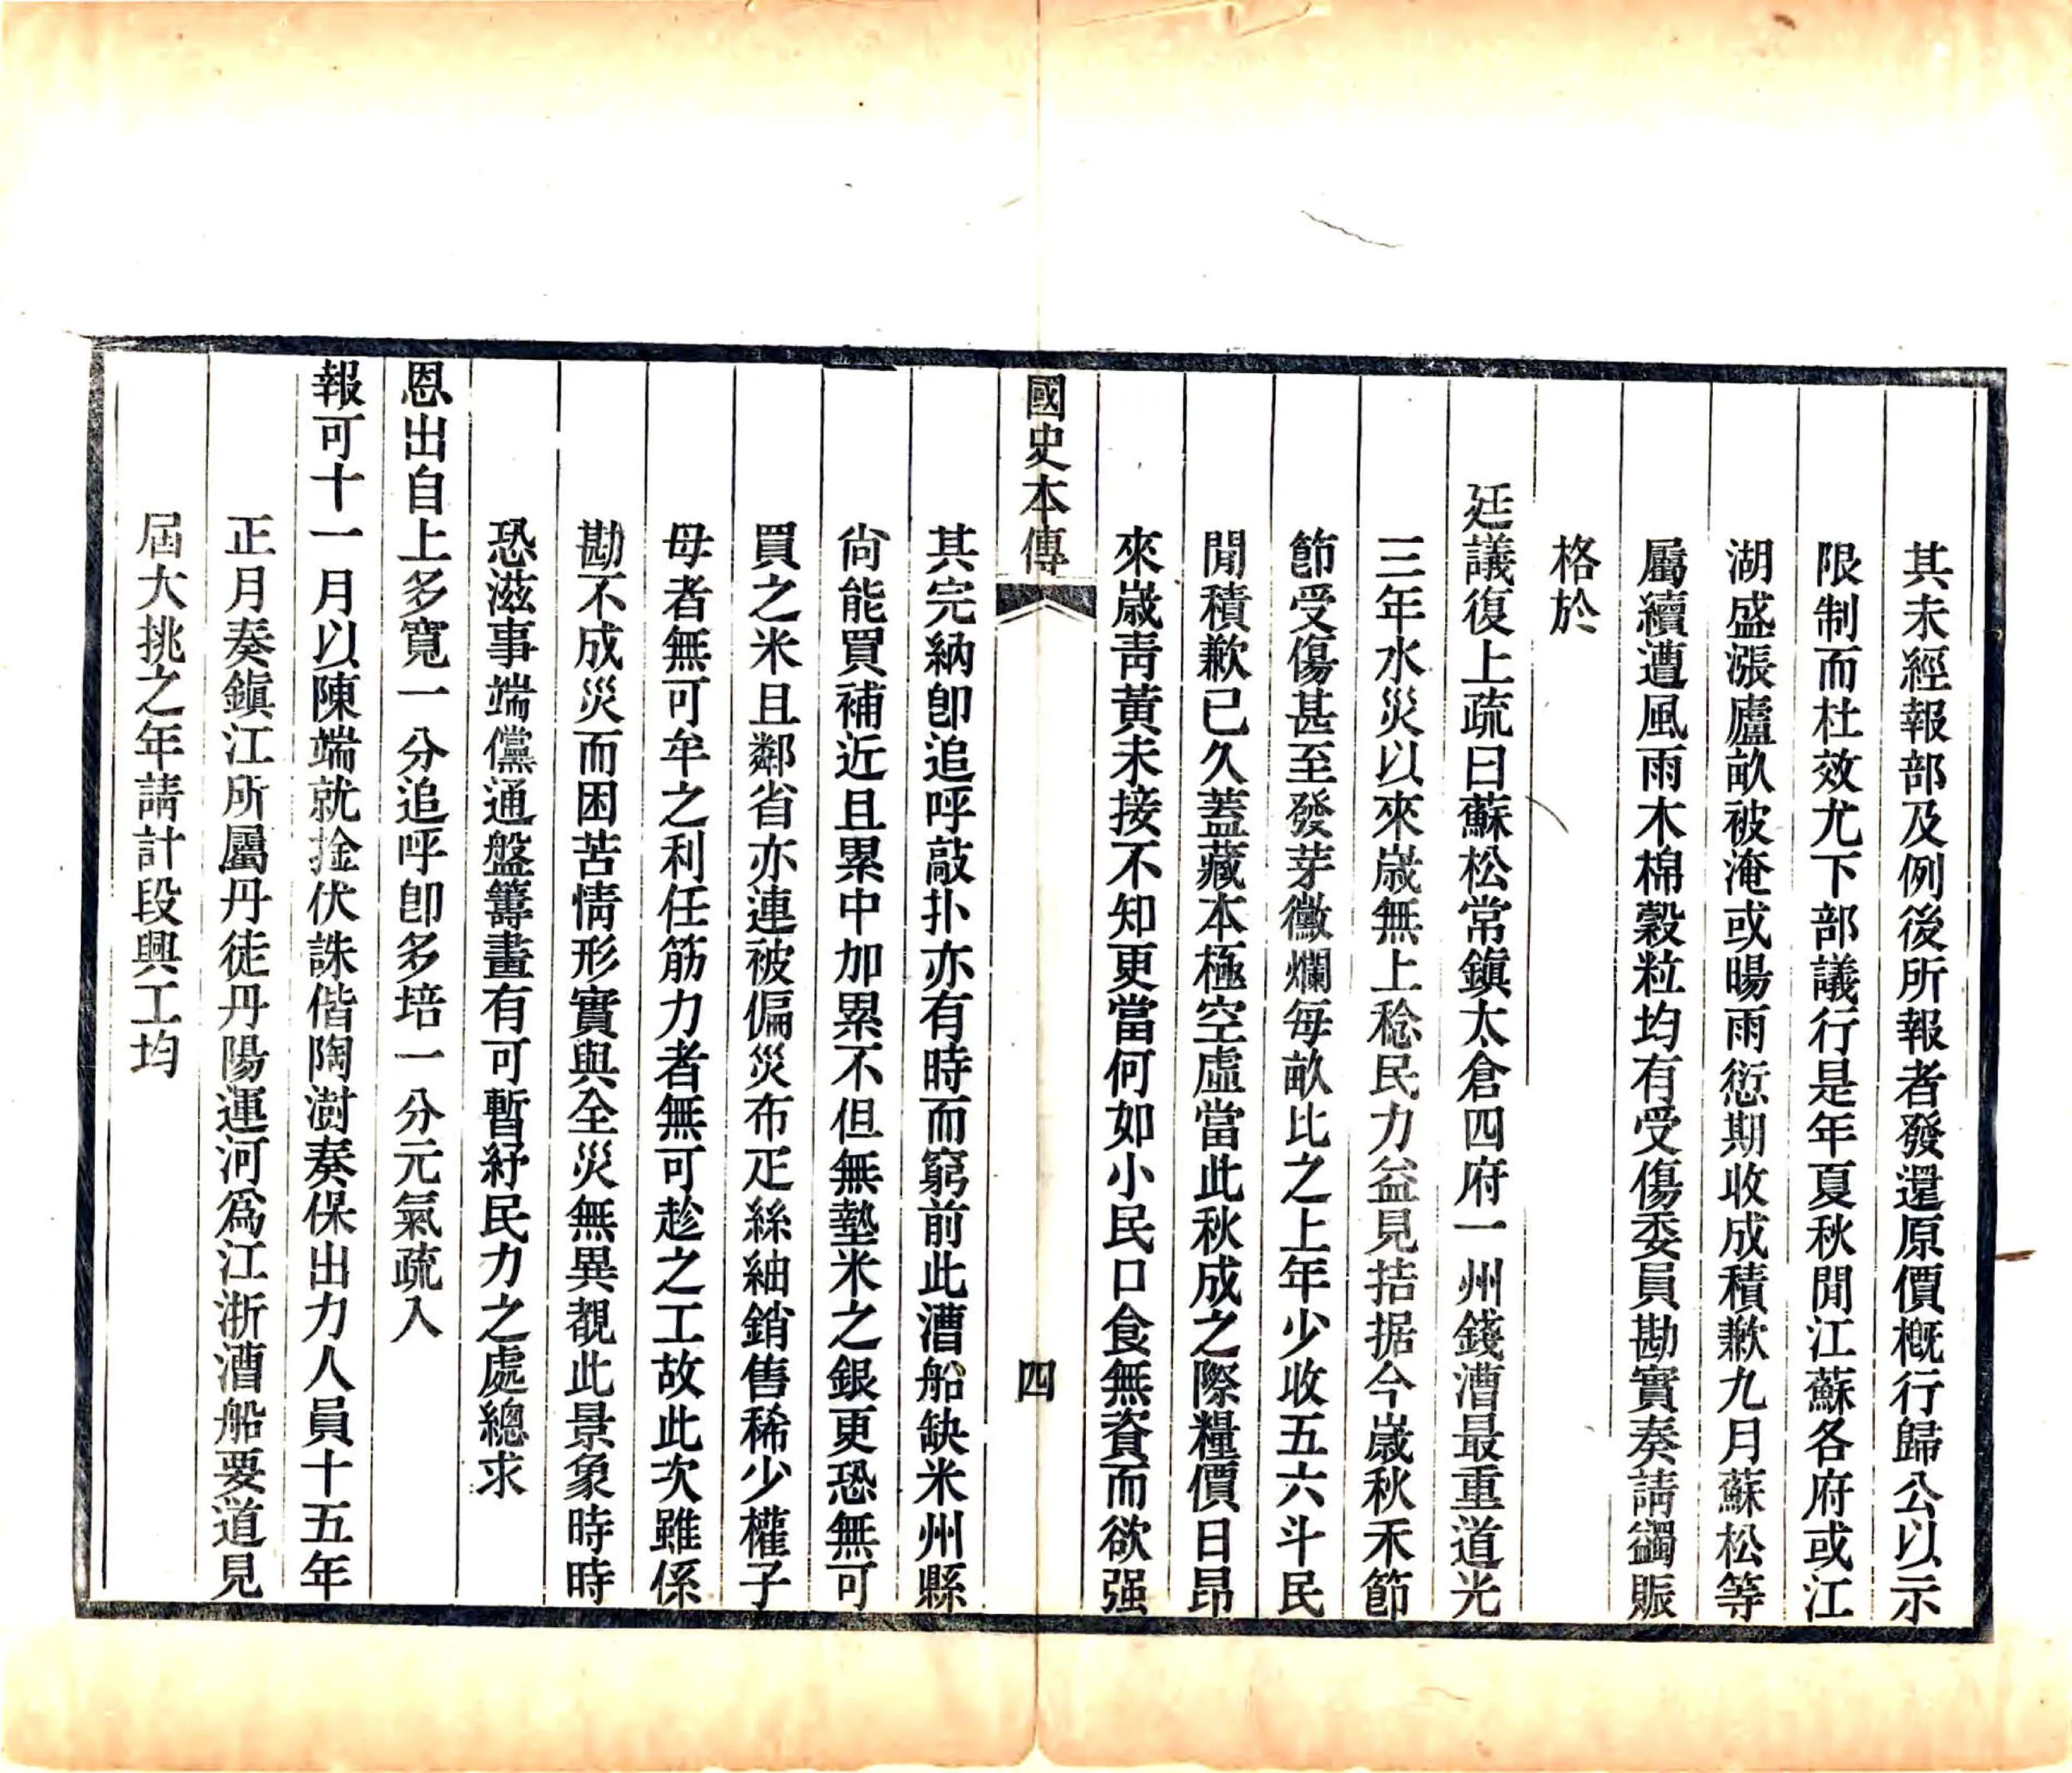 其未經報部及例後所報者發還原價槪行歸公以示
限制而杜效尤下部議行是年夏秋閒江蘇各府或江
湖盛漲廬畝被淹或暘雨愆期收成積歉九月蘇松等
屬續遭風雨木棉穀粒均有受傷委員勘實奏請蠲賑
格於
廷議復上疏曰蘇松常鎭太倉四府一州錢漕最重道光
三年水災以來歲無上稔民力益見拮据今歲秋禾節
節受傷甚至發芽黴爛每畝比之上年少收五六斗民
閒積歉已久蓋藏本極空虛當此秋成之際糧價日昂
來歲靑黃未接不知更當何如小民口食無資而欲强
國史本傳
四
其完納卽追呼敲扑亦有時而窮前此漕船缺米州縣
尙能買補近且累中加累不但無墊米之銀更恐無可
買之米且鄰省亦連被偏災布疋絲紬銷售稀少權子
母者無可牟之利任筋力者無可趁之工故此次雖係
勘不成災而困苦情形實與全災無異覩此景象時時
恐滋事端儻通盤籌畫有可暫紓民力之處總求
恩出自上多寬一分追呼卽多培一分元氣疏入
報可十一月以陳端就捦伏誅偕陶澍奏保出力人員十五年
正月奏鎭江所屬丹徒丹陽運河爲江浙漕船要道見
屆大挑之年請計段興工均